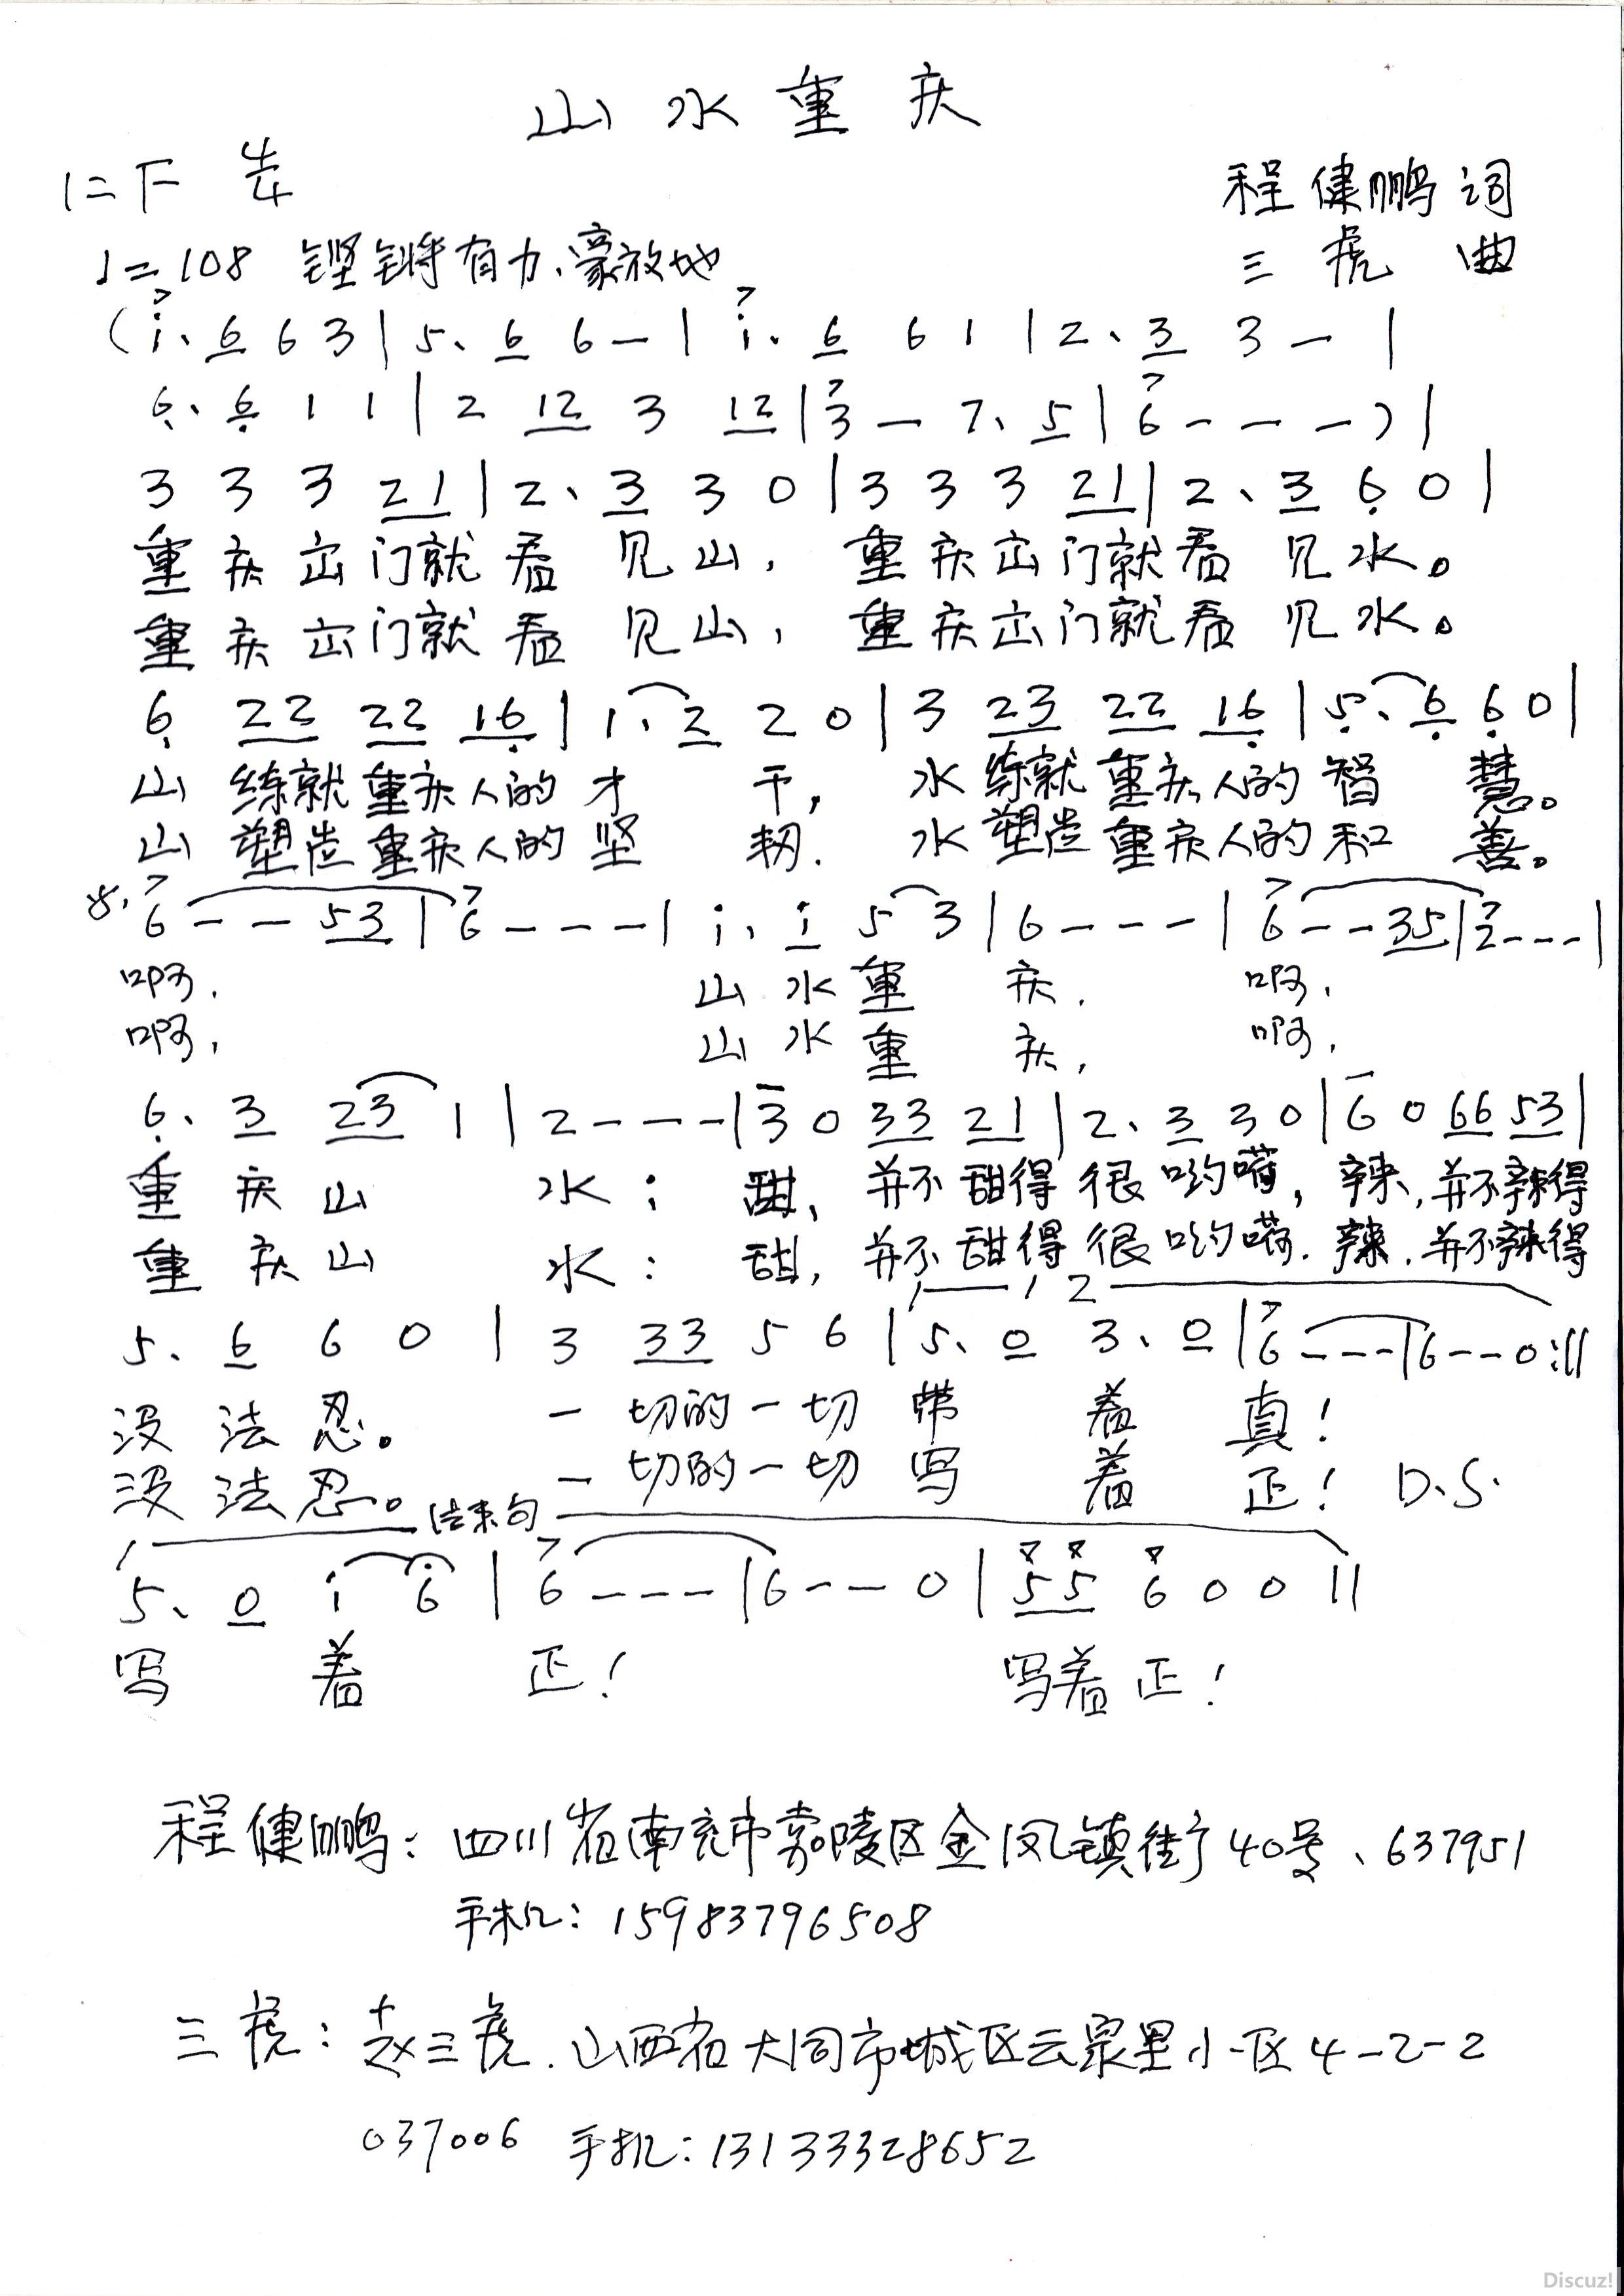 山水重庆
1=F 4/4
程健鹏词
♩=108 铿锵有力、豪放地
三虎 曲
(i. 6 6 3 | 5. 6 6 - | i. 6 6 1 | 2. 3 3 - |
6. 6 1 1 | 2 12 3 12 | 3 - 7. 5 | 6 - - - ) |
3 3 3 21 | 2. 3 3 0 | 3 3 3 21 | 2. 3 6 0 |
重庆出门就看见山, 重庆出门就看见水。
重庆出门就看见山, 重庆出门就看见水。
6 22 22 16 | 1. 2 2 0 | 3 23 22 16 | 5. 6 6 0 |
山练就重庆人的才干, 水练就重庆人的智慧。
山塑造重庆人的坚韧. 水塑造重庆人的和善。
6 - - 53 | 6 - - - | i. i 5 3 | 6 - - - | 6 - - 35 | 2 - - - |
啊, 山水重庆, 啊,
啊, 山水重庆, 啊,
6. 3 23 1 | 2 - - - | 3 0 33 21 | 2. 3 3 0 | 6 0 66 53 |
重庆山水: 甜, 并不甜得很哟嗬, 辣, 并不辣得
重庆山水: 甜, 并不甜得很哟嗬. 辣. 并不辣得
1 2
5. 6 6 0 | 3 33 5 6 | 5. 0 3. 0 | 6 - - - | 6 - - 0 :||
没法忍。 一切的一切带着真!
没法忍。 一切的一切写着正! D.S.
结束句
5. 0 i 6 | 6 - - - | 6 - - 0 | 55 6 0 0 ||
写着正! 写着正!
程健鹏: 四川省南充市嘉陵区金凤镇街40号、637951
手机: 15983796508
三虎: 赵三虎. 山西省大同市城区云泉里小区4-2-2
037006 手机: 13133328652
Discuz!